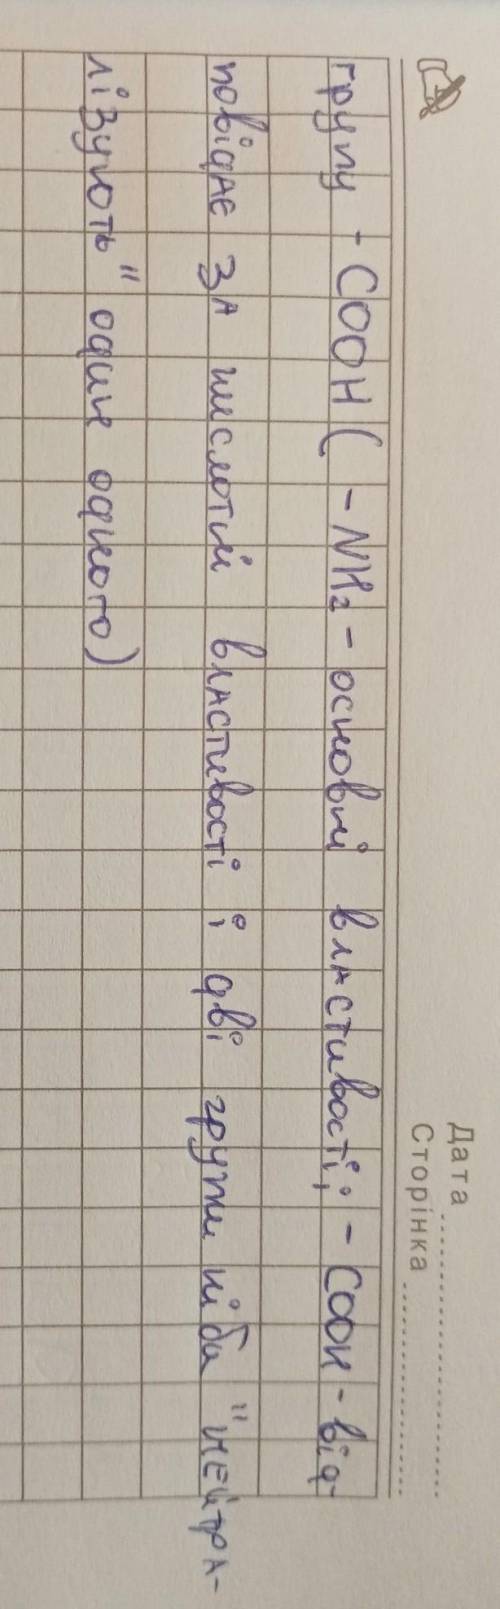 Дата
Сторінка
групу - COOH ( - NH2 - основні властивості; - COOH - від-
повідає за кислотні властивості і дві групи ніби "нейтра-
лізують" один одного)